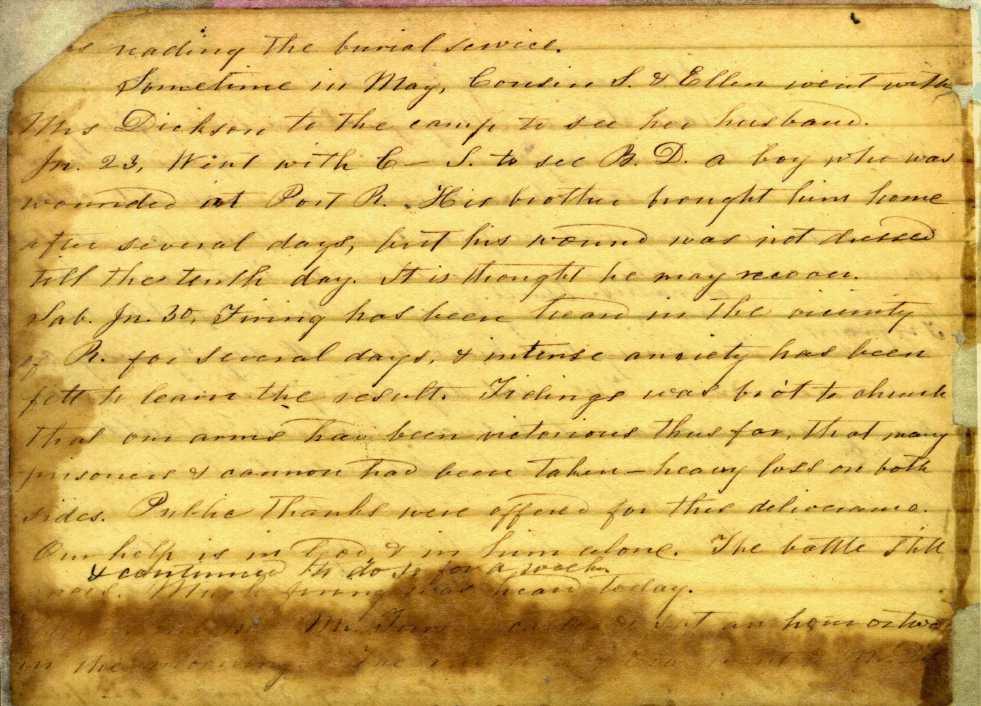 reading the burial service.
Sometime in May, Cousin S. & Ellen went with
Mrs Dickson to the camp to see her husband.
Jn. 23, Went with C— S. to see B. D. a boy who was
wounded at Port R. His brother brought him home
after several days, but his wound was not dressed
till the tenth day. It is thought he may recover.
Sab. Jn. 30, Firing has been heard in the vicinity
of R. for several days, & intense anxiety has been
felt to learn the result. Tidings was bro't to church
that our arms had been victorious thus far, that many
prisoners & cannon had been taken—heavy loss on both
sides. Public thanks were offered for this deliverance.
Our help is in God & in him alone. The battle still
& continued to do so for a week.
Much firing was heard today.
Mr. an hour or two
in the